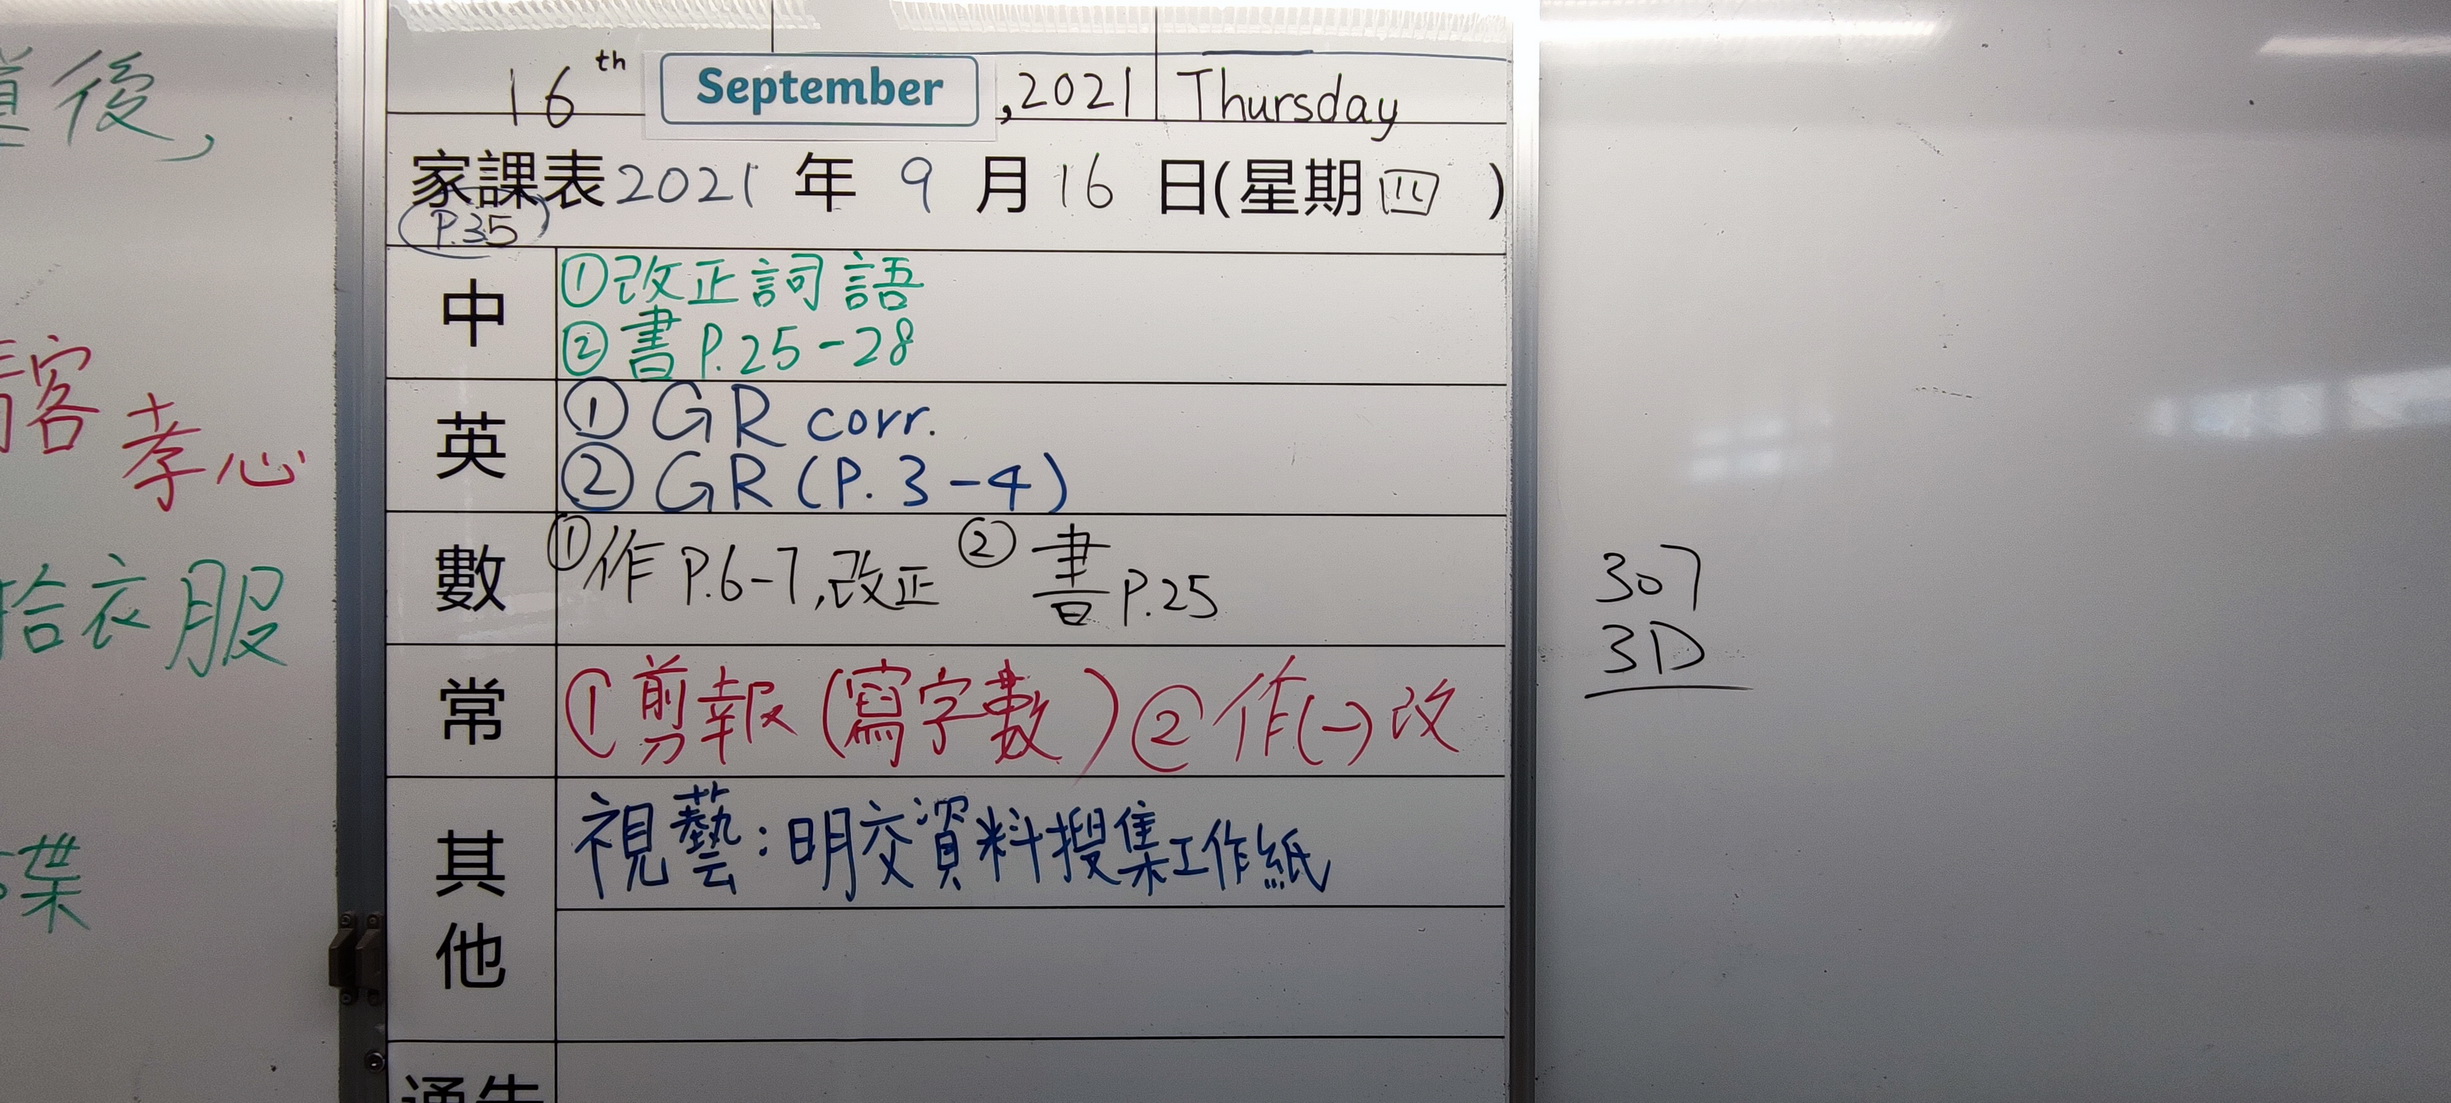 後,
客
孝心
拾衣服
碟
16th September, 2021 Thursday
家課表2021年9月16日(星期四)
(P.35)
中
①改正詞語
②書P.25-28
英
① GR corr.
② GR (P. 3-4)
數
①作P.6-7,改正 ②書P.25
常
①剪報(寫字數)②作(一)改
其他
視藝:明交資料搜集工作紙
通告
307
3D